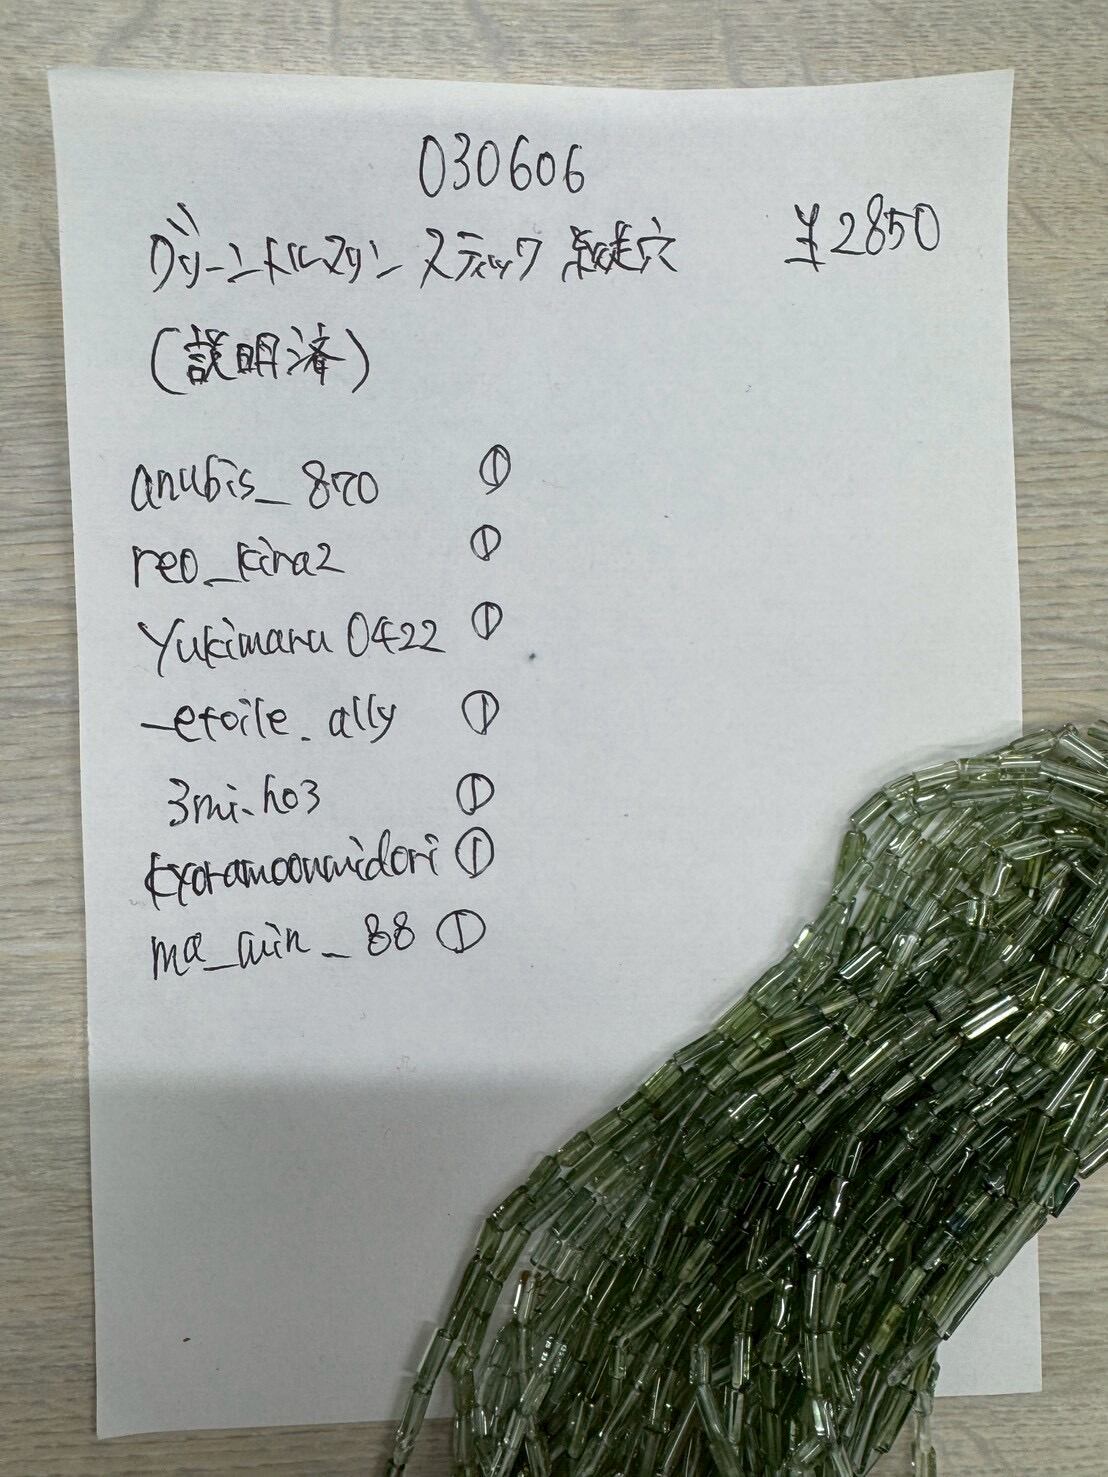 030606
グリーントルマリン スティック 縦穴 ¥2850
(説明済)
anubis_870 ①
reo_kira2 ①
Yukimaru0422 ①
_etoile.ally ①
3mi.ho3 ①
kyoramoonmidori ①
ma_win_88 ①